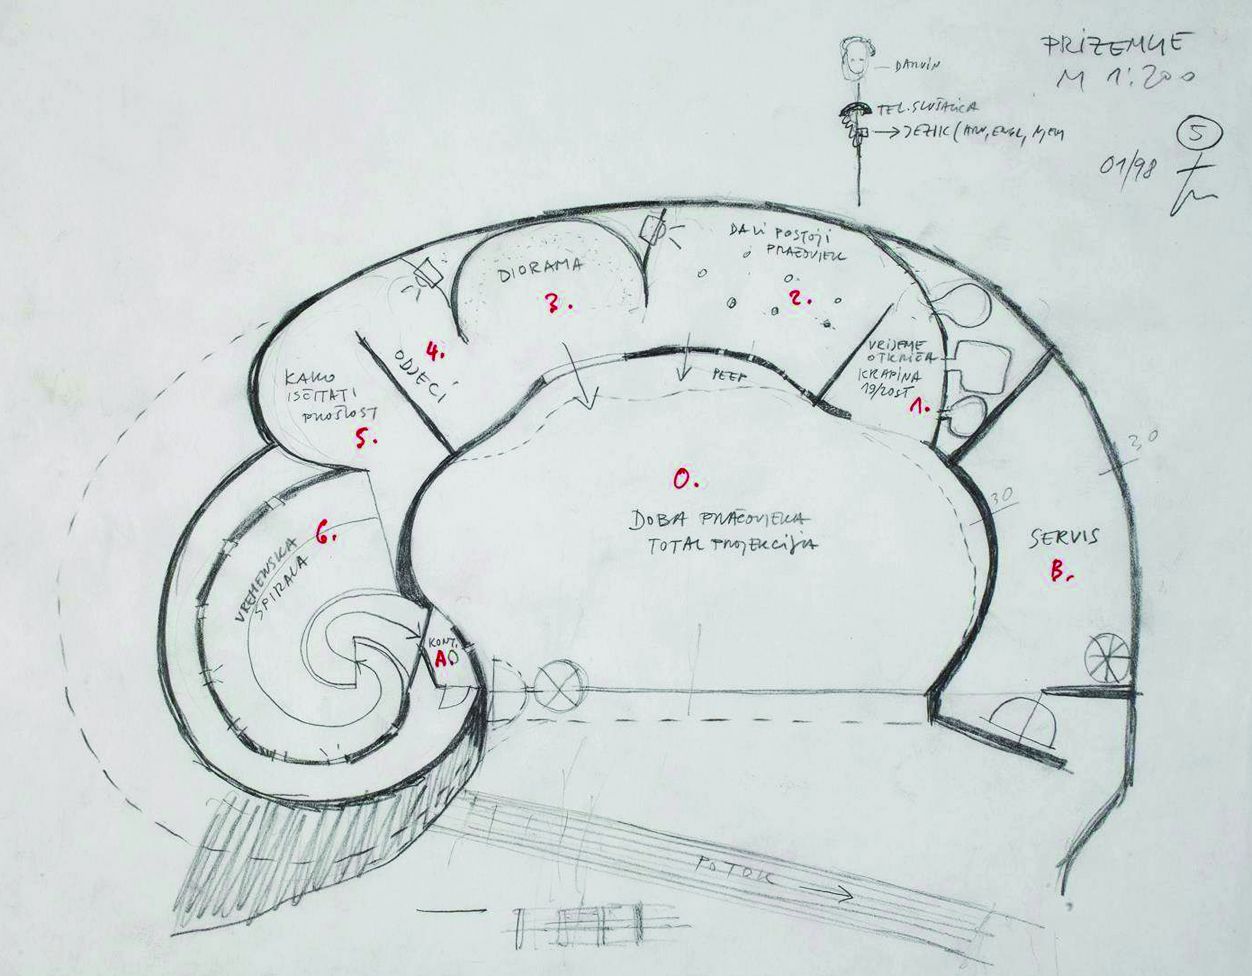 PRIZEMLJE
M 1:200
5
01/98
DARVIN
TEL. SLUŠALICA
JEZIK (HRV, ENGL, NJEM
DIORAMA
3.
DA LI POSTOJI
PRAČOVJEK
2.
VRIJEME
OTKRIĆA
KRAPINA
19/20ST
1.
PEEP
4.
ODJECI
KAKO
IŠČITATI
PROŠLOST
5.
0.
DOBA PRAČOVJEKA
TOTAL PROJEKCIJA
30
30
SERVIS
B.
6.
VREMENSKA
SPIRALA
KONT.
A
POTOK